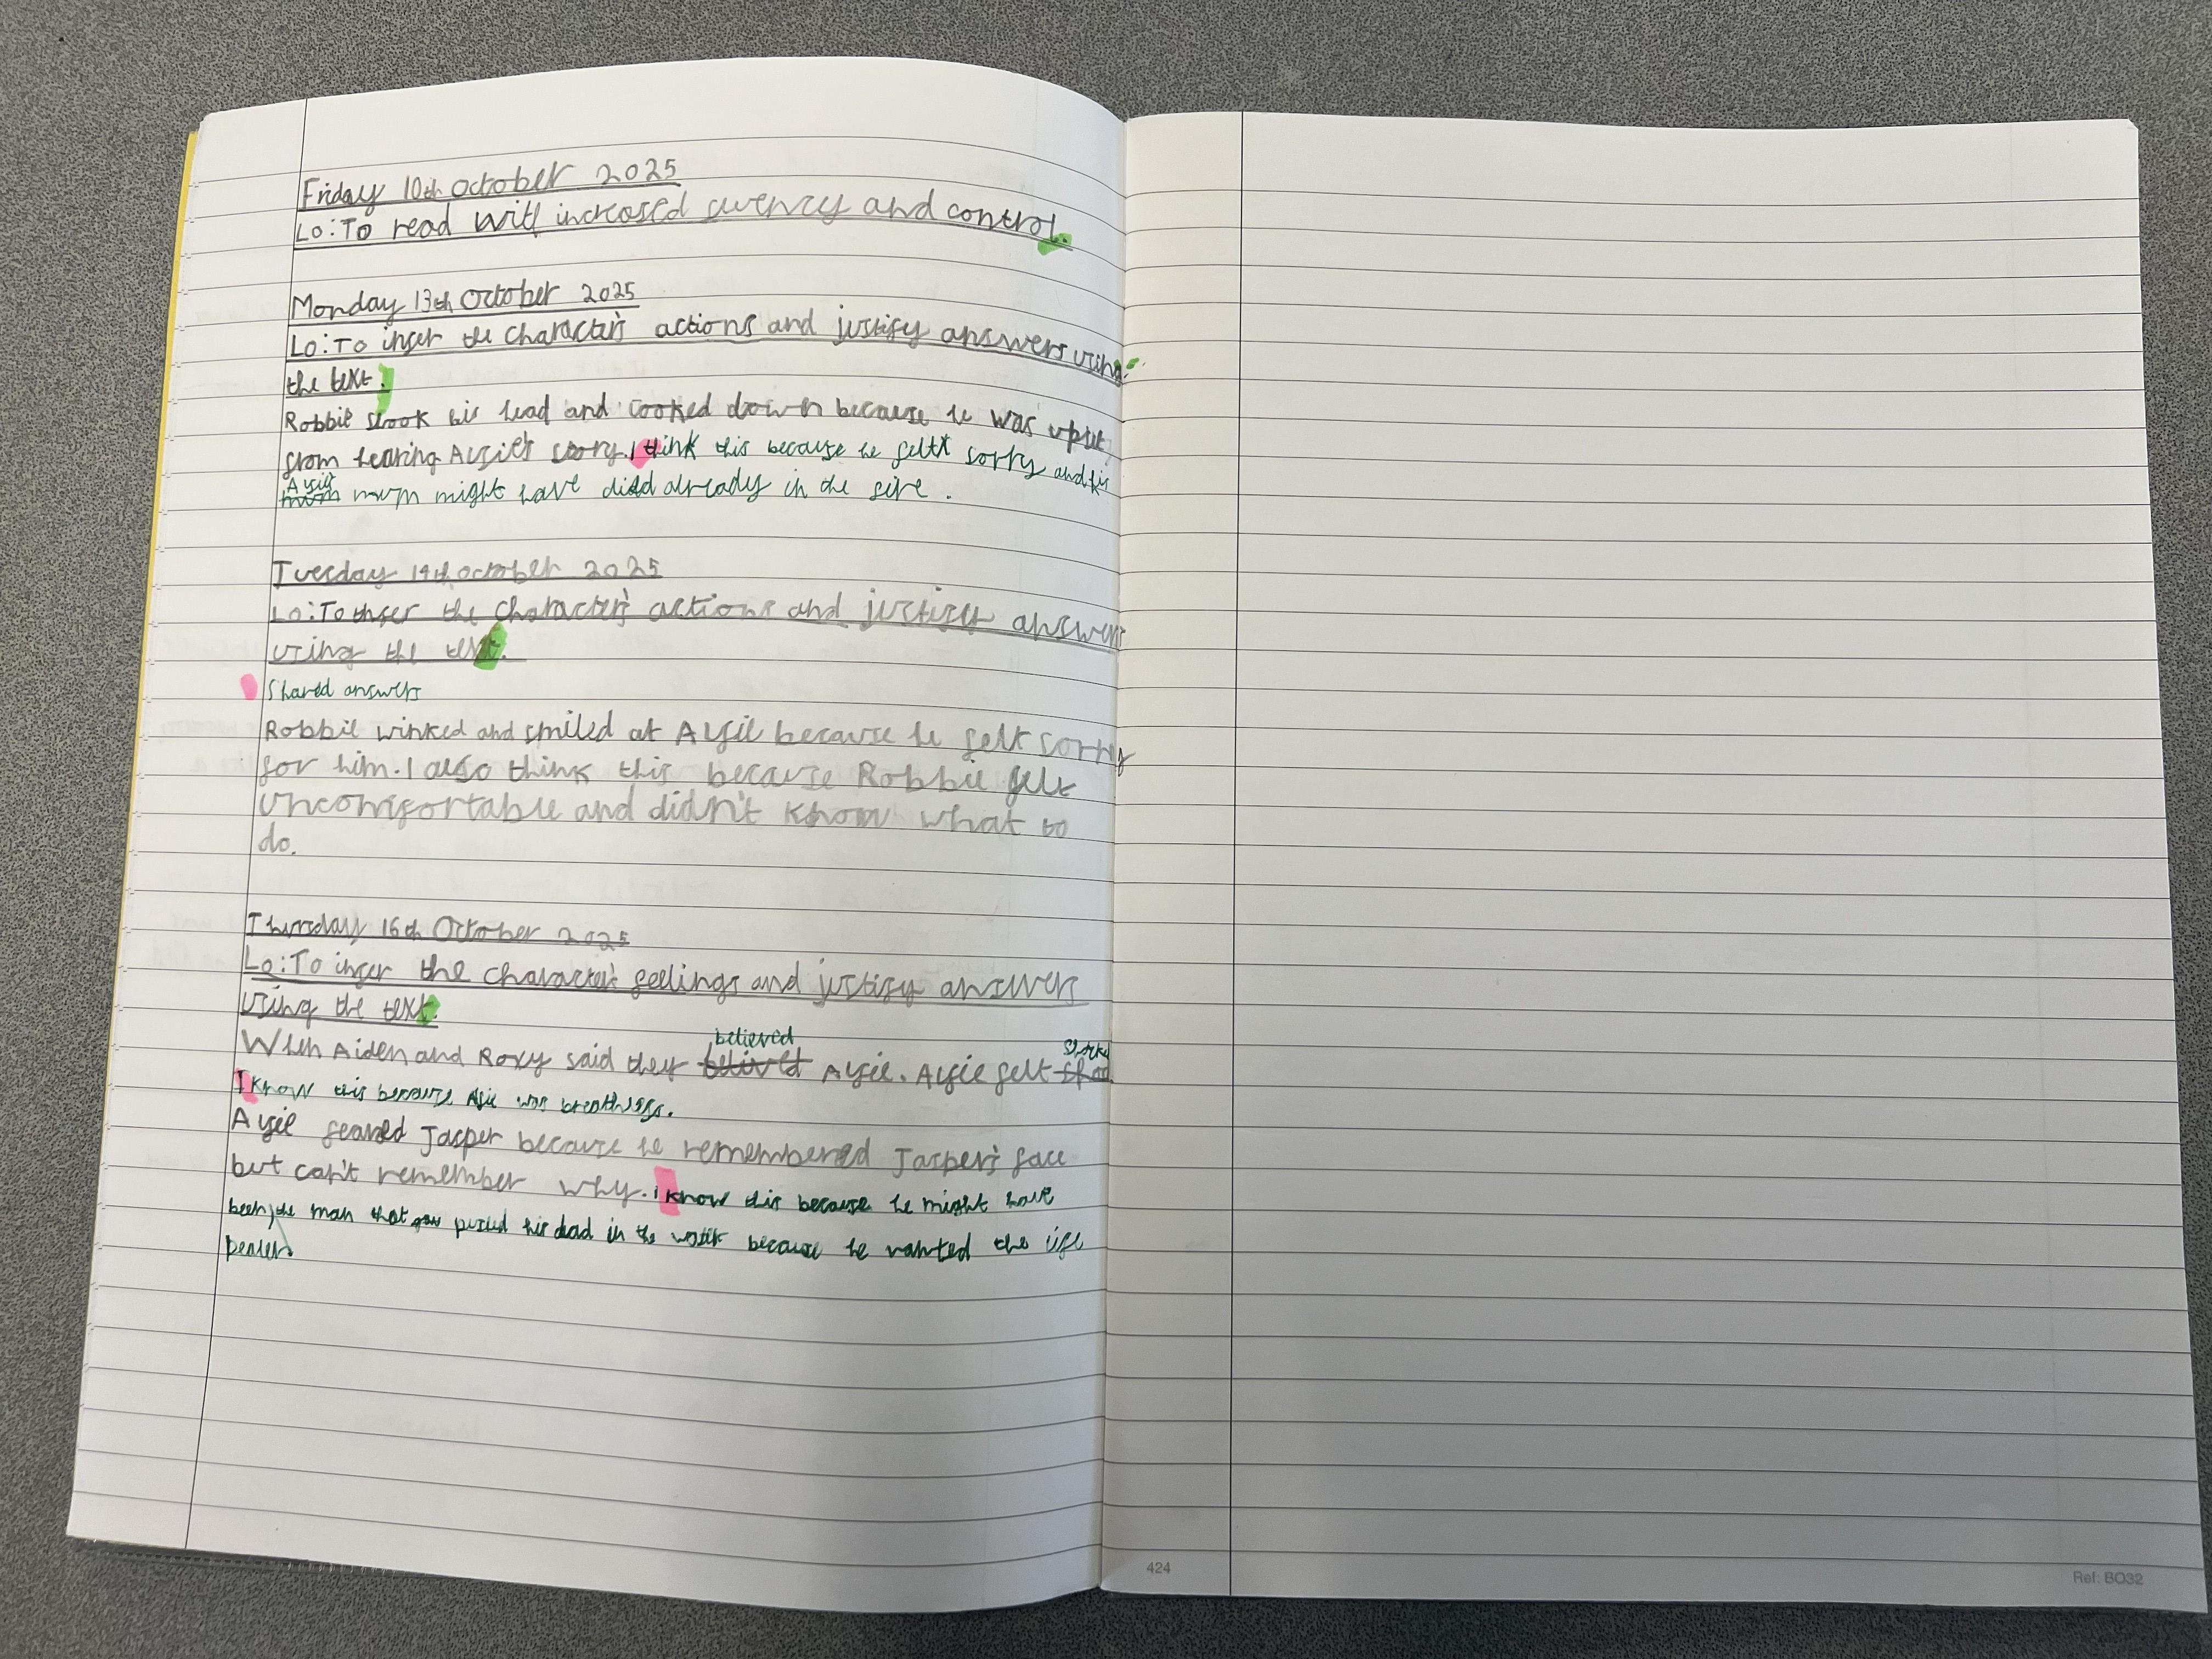 Friday 10th October 2025
Lo: To read with increased fluency and control.
Monday 13th October 2025
Lo: To infer the character's actions and justify answers using
the text.
Robbie shook his head and looked down because he was upset
from hearing Alfie's story. I think this because he felt sorry and his
Alfie
mum mum might have died already in the fire.
Tuesday 14th October 2025
Lo: To infer the character's actions and justify answers
using the text.
Shared answers
Robbie winked and smiled at Alfie because he felt sorry
for him. I also think this because Robbie felt
uncomfortable and didn't know what to
do.
Thursday 16th October 2025
Lo: To infer the character's feelings and justify answers
using the text.
believed
When Aiden and Roxy said they Alfie. Alfie felt
I know this because Alfie was breathless.
Alfie feared Jasper because he remembered Jasper's face
but can't remember why. I know this because he might have
been the man that his dad in the because he wanted the life
424
Ref: BO32